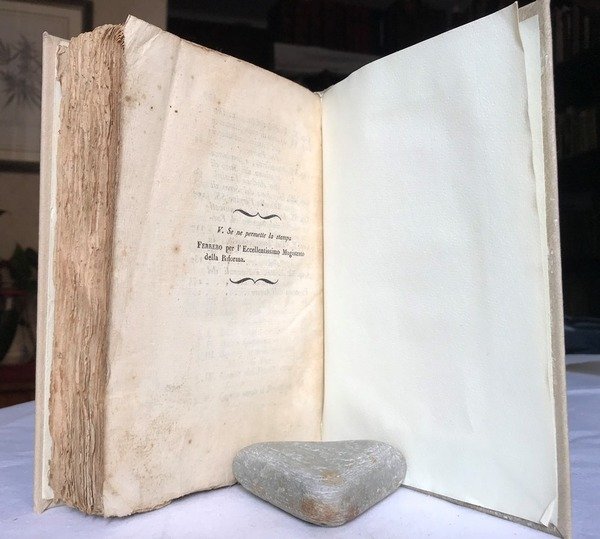 V. Se ne permette la stampa
FERRERO per l'Eccellentissimo Magistrato
della Riforma.